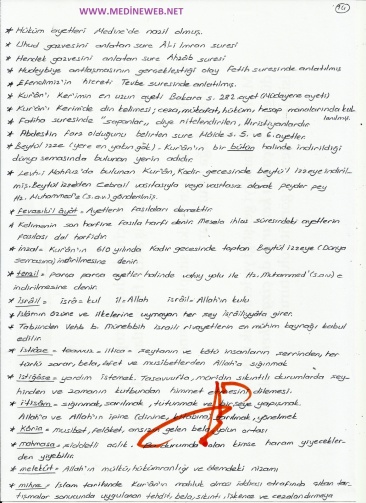 www.MEDİNEWEB.NET
* Hüküm ayetleri Medine'de nazil olmuş.
* Uhud gazvesini anlatan sure Âl-i İmran suresi
* Hendek gazvesini anlatan sure Ahzâb suresi
* Hudeybiye antlaşmasının gerçekleştiği olay Fetih suresinde anlatılmış
* Efendimiz'in hicreti Tevbe suresinde anlatılmış.
* Kur'ân'ı Kerimin en uzun ayeti Bakara s. 282. ayet (Müdayene ayeti)
* Kur'ân'ı Kerimde din kelimesi; ceza, mükafat, hüküm, hesap manalarında kul-
lanılmış.
* Fatiha suresinde "sapanlar" diye nitelendirilen, Hıristiyanlardır
* Abdestin farz olduğunu belirten sure Mâide s. 5. ve 6. ayetler.
* Beytül izze (yere en yakın gök) - Kur'ân'ın bir bütün halinde indirildiği
dünya semasında bulunan yerin adıdır.
* Levh-i Mahfuz'da bulunan Kur'ân, Kadir gecesinde beytü'l izzeye indiril-
miş. Beytül izzeden Cebrail vasıtasıyla veya vasıtasız olarak peyder pey
Hz. Muhammed'e (s.a.v.) gönderilmiş.
* Fevasılü'l âyât = Ayetlerin fasılaları demektir.
* Kelimenin son harfine fasıla harfi denir. Mesela ihlas süresindeki ayetlerin
fasılası dal harfidir.
* İnzal = Kur'ân'ın 610 yılında Kadir gecesinde toptan Beytül izzeye (Dünya
semasına) indirilmesine denir.
* tenzil = parça parça ayetler halinde vahiy yolu ile Hz. Muhammed'(s.a.v) e
indirilmesine denir.
* İsrâil = isrâ = kul il = Allah isrâil = Allah'ın kulu
* İslâmın özüne ve ilkelerine uymayan her şey isrâiliyyâta girer.
* Tabiinden Vehb b. Münebbih israili rivayetlerin en mühim kaynağı kabul
edilir.
* istiâze = teavvuz = iltica = şeytanın ve kötü insanların şerrinden, her
türlü zarar, bela, afet ve musibetlerden Allah'a sığınmak
* istiğâse = yardım istemek. Tasavvufta, müridin sıkıntılı durumlarda şey-
hinden ve zamanın kutbundan himmet etmesini dilemesi.
* i'tisâm = sığınmak, sarılmak, tutunmak ve bir şeye yapışmak.
Allah'a ve Allah'ın ipine (dinine, kitabına) sarılmak, yönelmek
* Kâria = musibet, felaket, ansızın gelen bela, yolun ortası
* mahmasa = şiddetli açlık. Bu durumda olan kimse haram yiyecekler-
den yiyebilir.
* melekût = Allah'ın mülkü, hükümranlığı ve âlemdeki nizamı
* mihne = İslam tarihinde Kur'ân'ın mahluk olması iddiası etrafında çıkan tar-
tışmalar sonucunda uygulanan tehdit, bela, sıkıntı, işkence ve cezalandırmaya